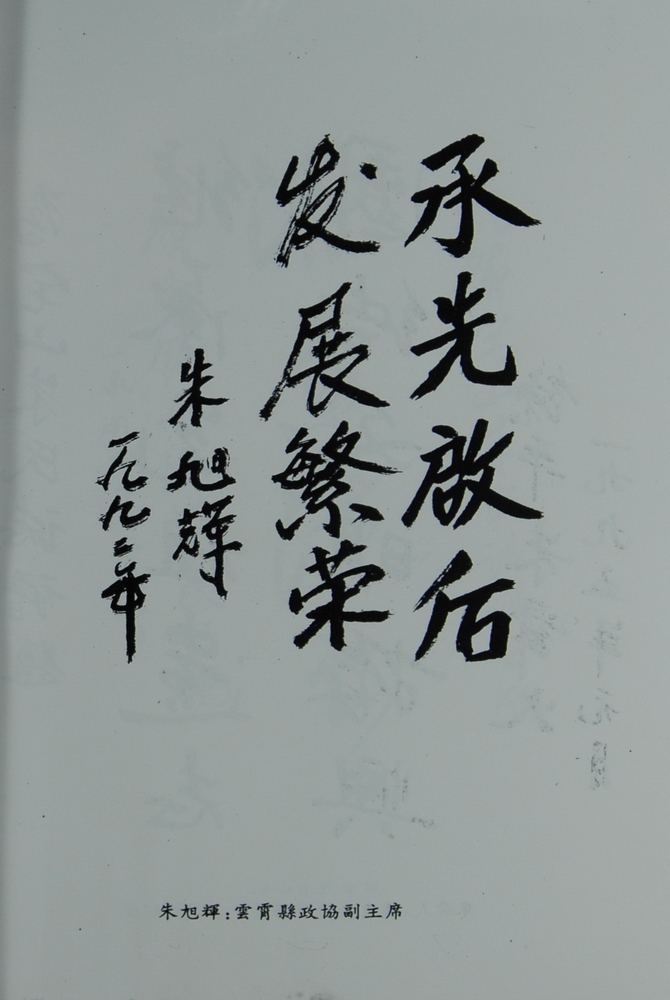 承先啟后
发展繁荣
朱旭輝
一九九二年
朱旭輝：雲霄縣政協副主席